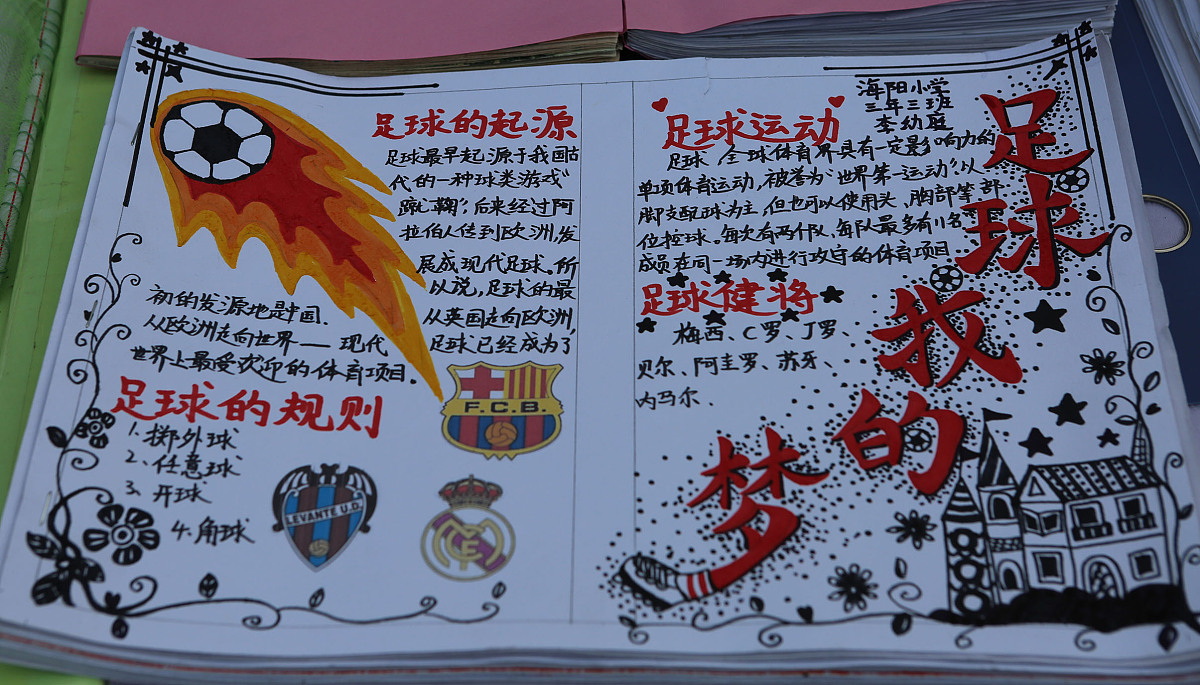 足球的起源
足球最早起源于我国古
代的一种球类游戏"
蹴鞠",后来经过阿
拉伯人传到欧洲,发
展成现代足球。所
以说,足球的最
初的发源地是中国.
从欧洲走向世界——现代
从英国走向欧洲,
足球已经成为了
世界上最受欢迎的体育项目.
足球的规则
1.掷外球
2、任意球
3、开球
4.角球
F.C.B.
LEVANTE U.D.
足球运动
海阳小学
三年三班
足球,全球体育界具有一定影响力的
单项体育运动,被誉为"世界第一运动".以
脚支配球为主,但也可以使用头、胸部等部
位控球。每次有两个队、每队最多有11名
成员在同一场内进行攻守的体育项目
足球健将
梅西、C罗、J罗、
贝尔、阿圭罗、苏牙、
内马尔、
足球我的梦